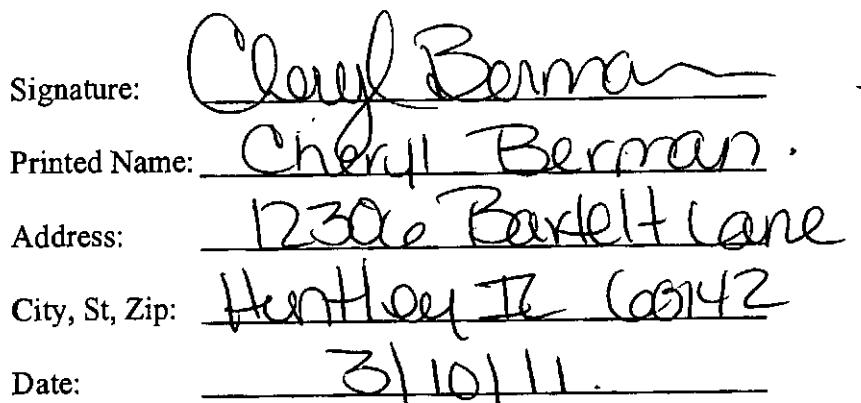 Signature: Cheryl Berman
Printed Name: Cheryl Berman.
Address: 12306 Bartelt Lane
City, St, Zip: Huntley IL 60142
Date: 3/10/11.